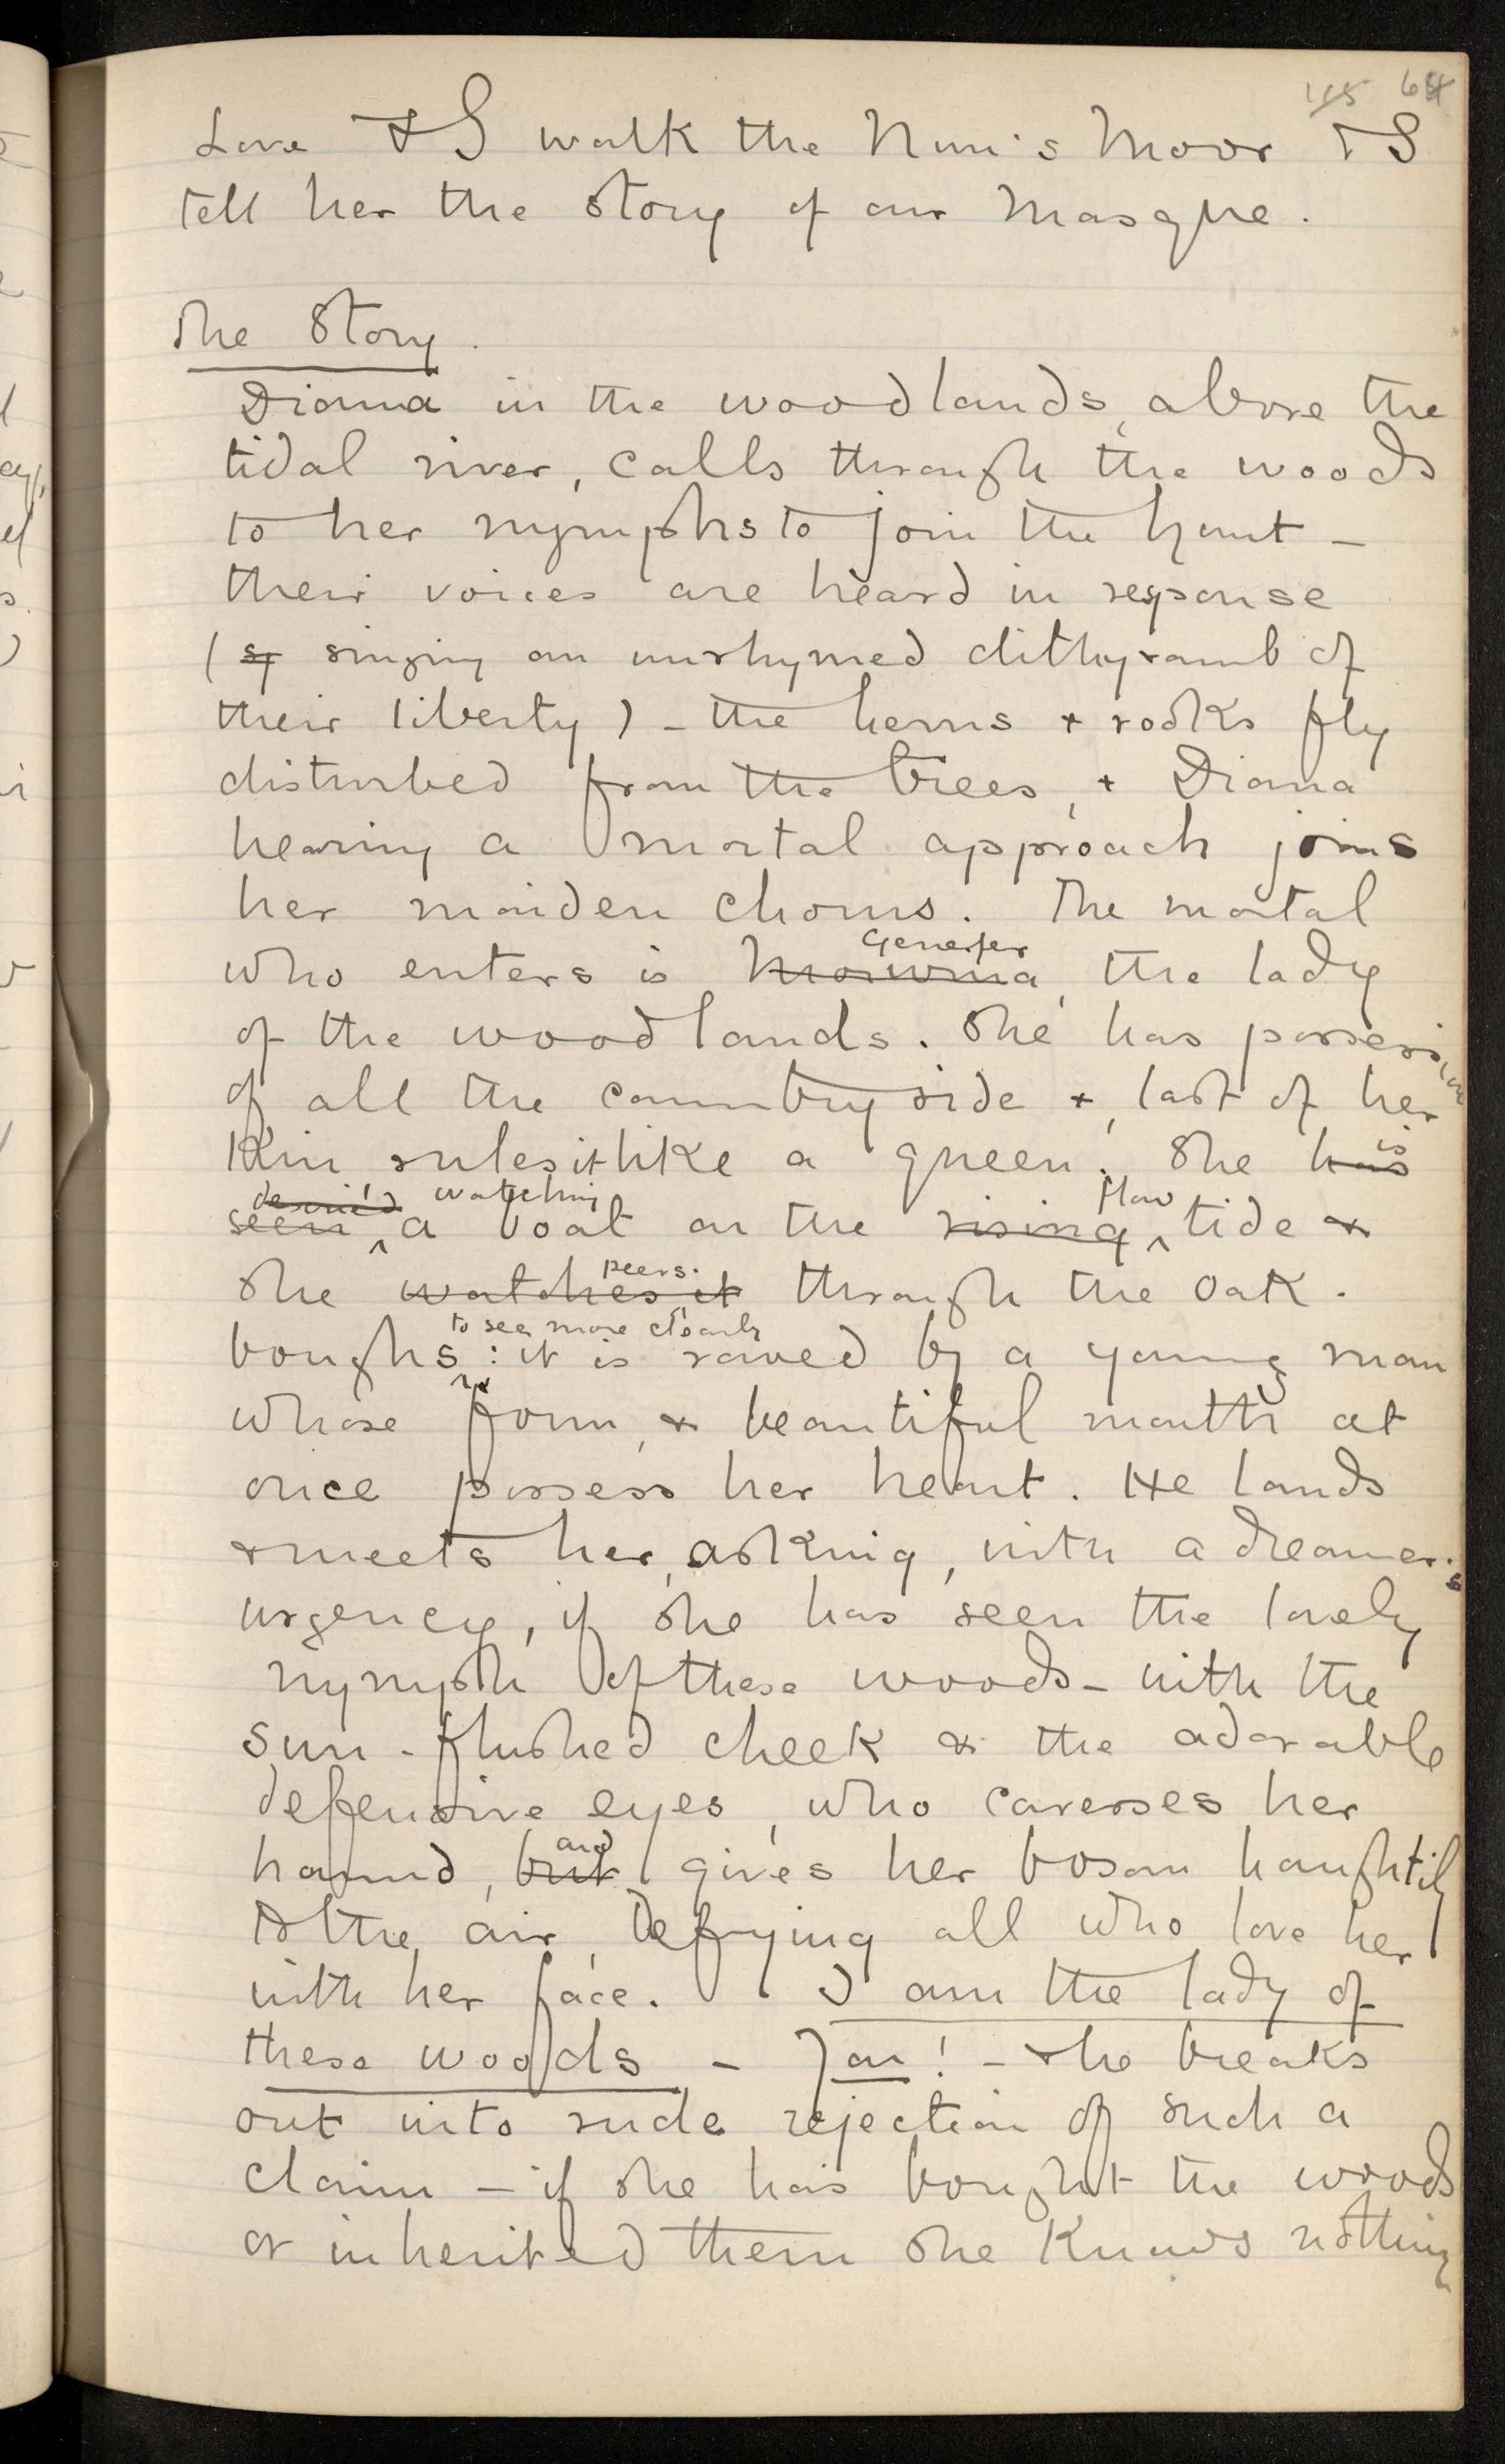 115 64
Love & I walk the Nun's Moor & I
tell her the story of our Masque.
The Story.
Diana in the woodlands, above the
tidal river, calls through the woods
to her nymphs to join the hunt –
their voices are heard in response
(sy singing an unrhymed dithyramb of
their liberty) – the herns & rooks fly
disturbed from the trees, & Diana
hearing a mortal approach joins
her maiden chorus. The mortal
Genefer
who enters is Morwena, the lady
of the woodlands. She has possession
of all the countryside &, last of her
Kin rules it like a queen. She has is
descried watching flow
seen a boat on the rising tide &
peers
she watches it through the oak-
to see more closely
boughs: it is rowed by a young man
whose form, & beautiful mouth at
once possess her heart. He lands
& meets her, asking, with a dreamer's
urgency, if she has seen the lovely
nymph of these woods – with the
sun-flushed cheek & the adorable
defensive eyes, who caresses her
and
hound, but gives her bosom haughtily
to the air, defying all who love her
with her face. I am the lady of
these woods – You! – & he breaks
out into rude rejection of such a
claim – if she has bought the woods
or inherited them she Knows nothing